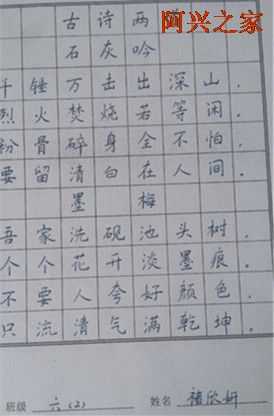 阿兴之家
古诗两
石灰吟
千锤万击出深山.
烈火焚烧若等闲.
粉骨碎身全不怕.
要留清白在人间.
墨 梅
吾家洗砚池头树.
个个花开淡墨痕.
不要人夸好颜色.
只流清气满乾坤.
班级 六(2) 姓名 褚欣妍